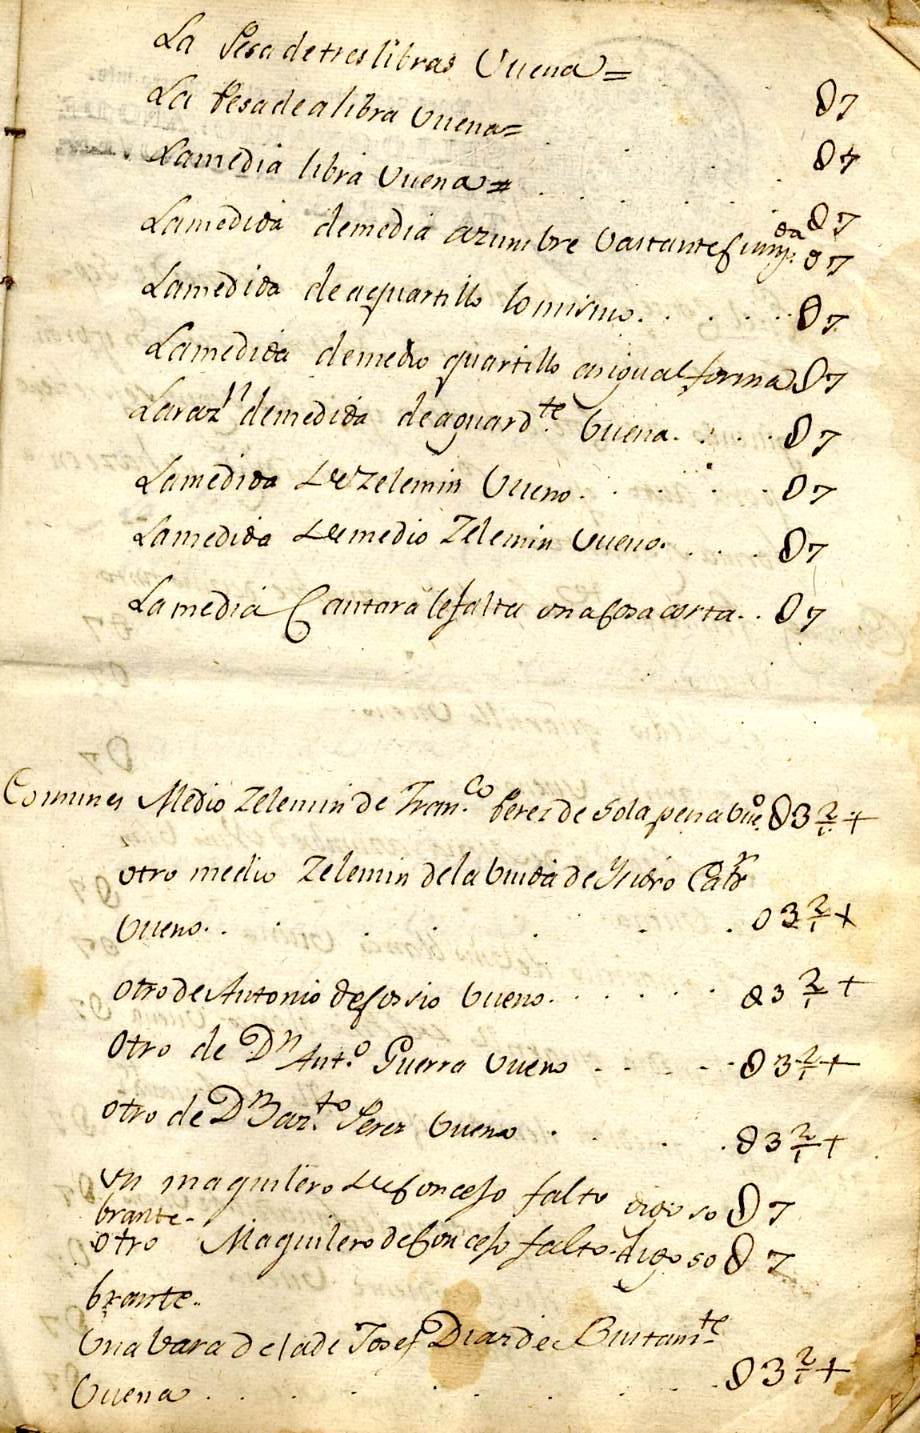 La Pesa de tres libras Vuena=
07
La Pesa de a libra Vuena=
07
La media libra Vuena=
07
La medida de media azumbre bastante
07
La medida de a quartillo lo mismo. 07
La medida de medio quartillo en igual forma 07
La raz.n de medida de aguard.te buena. 07
La medida de Zelemin Vueno. 07
La medida de medio Zelemin Vueno. 07
La media Cantara le falta una cosa corta. 07
Comunes Medio Zelemin de Fran.co Perez de Sola pena bue.o 03 2/1 +
otro medio Zelemin de la biuda de Ysidro
bueno. 03 2/1 +
otro de Antonio de cossio bueno. 03 2/1 +
Otro de Dn Ant.o Guerra bueno 03 2/1 +
otro de Dn Bar.to Perez bueno 03 2/1 +
un maquilero de Conçejo falto digo so 07
brante.
otro Maquilero de Conçejo falto digo so 07
brante..
Una bara de la de Josef Diaz de Bustam.te
buena 03 2/1 +